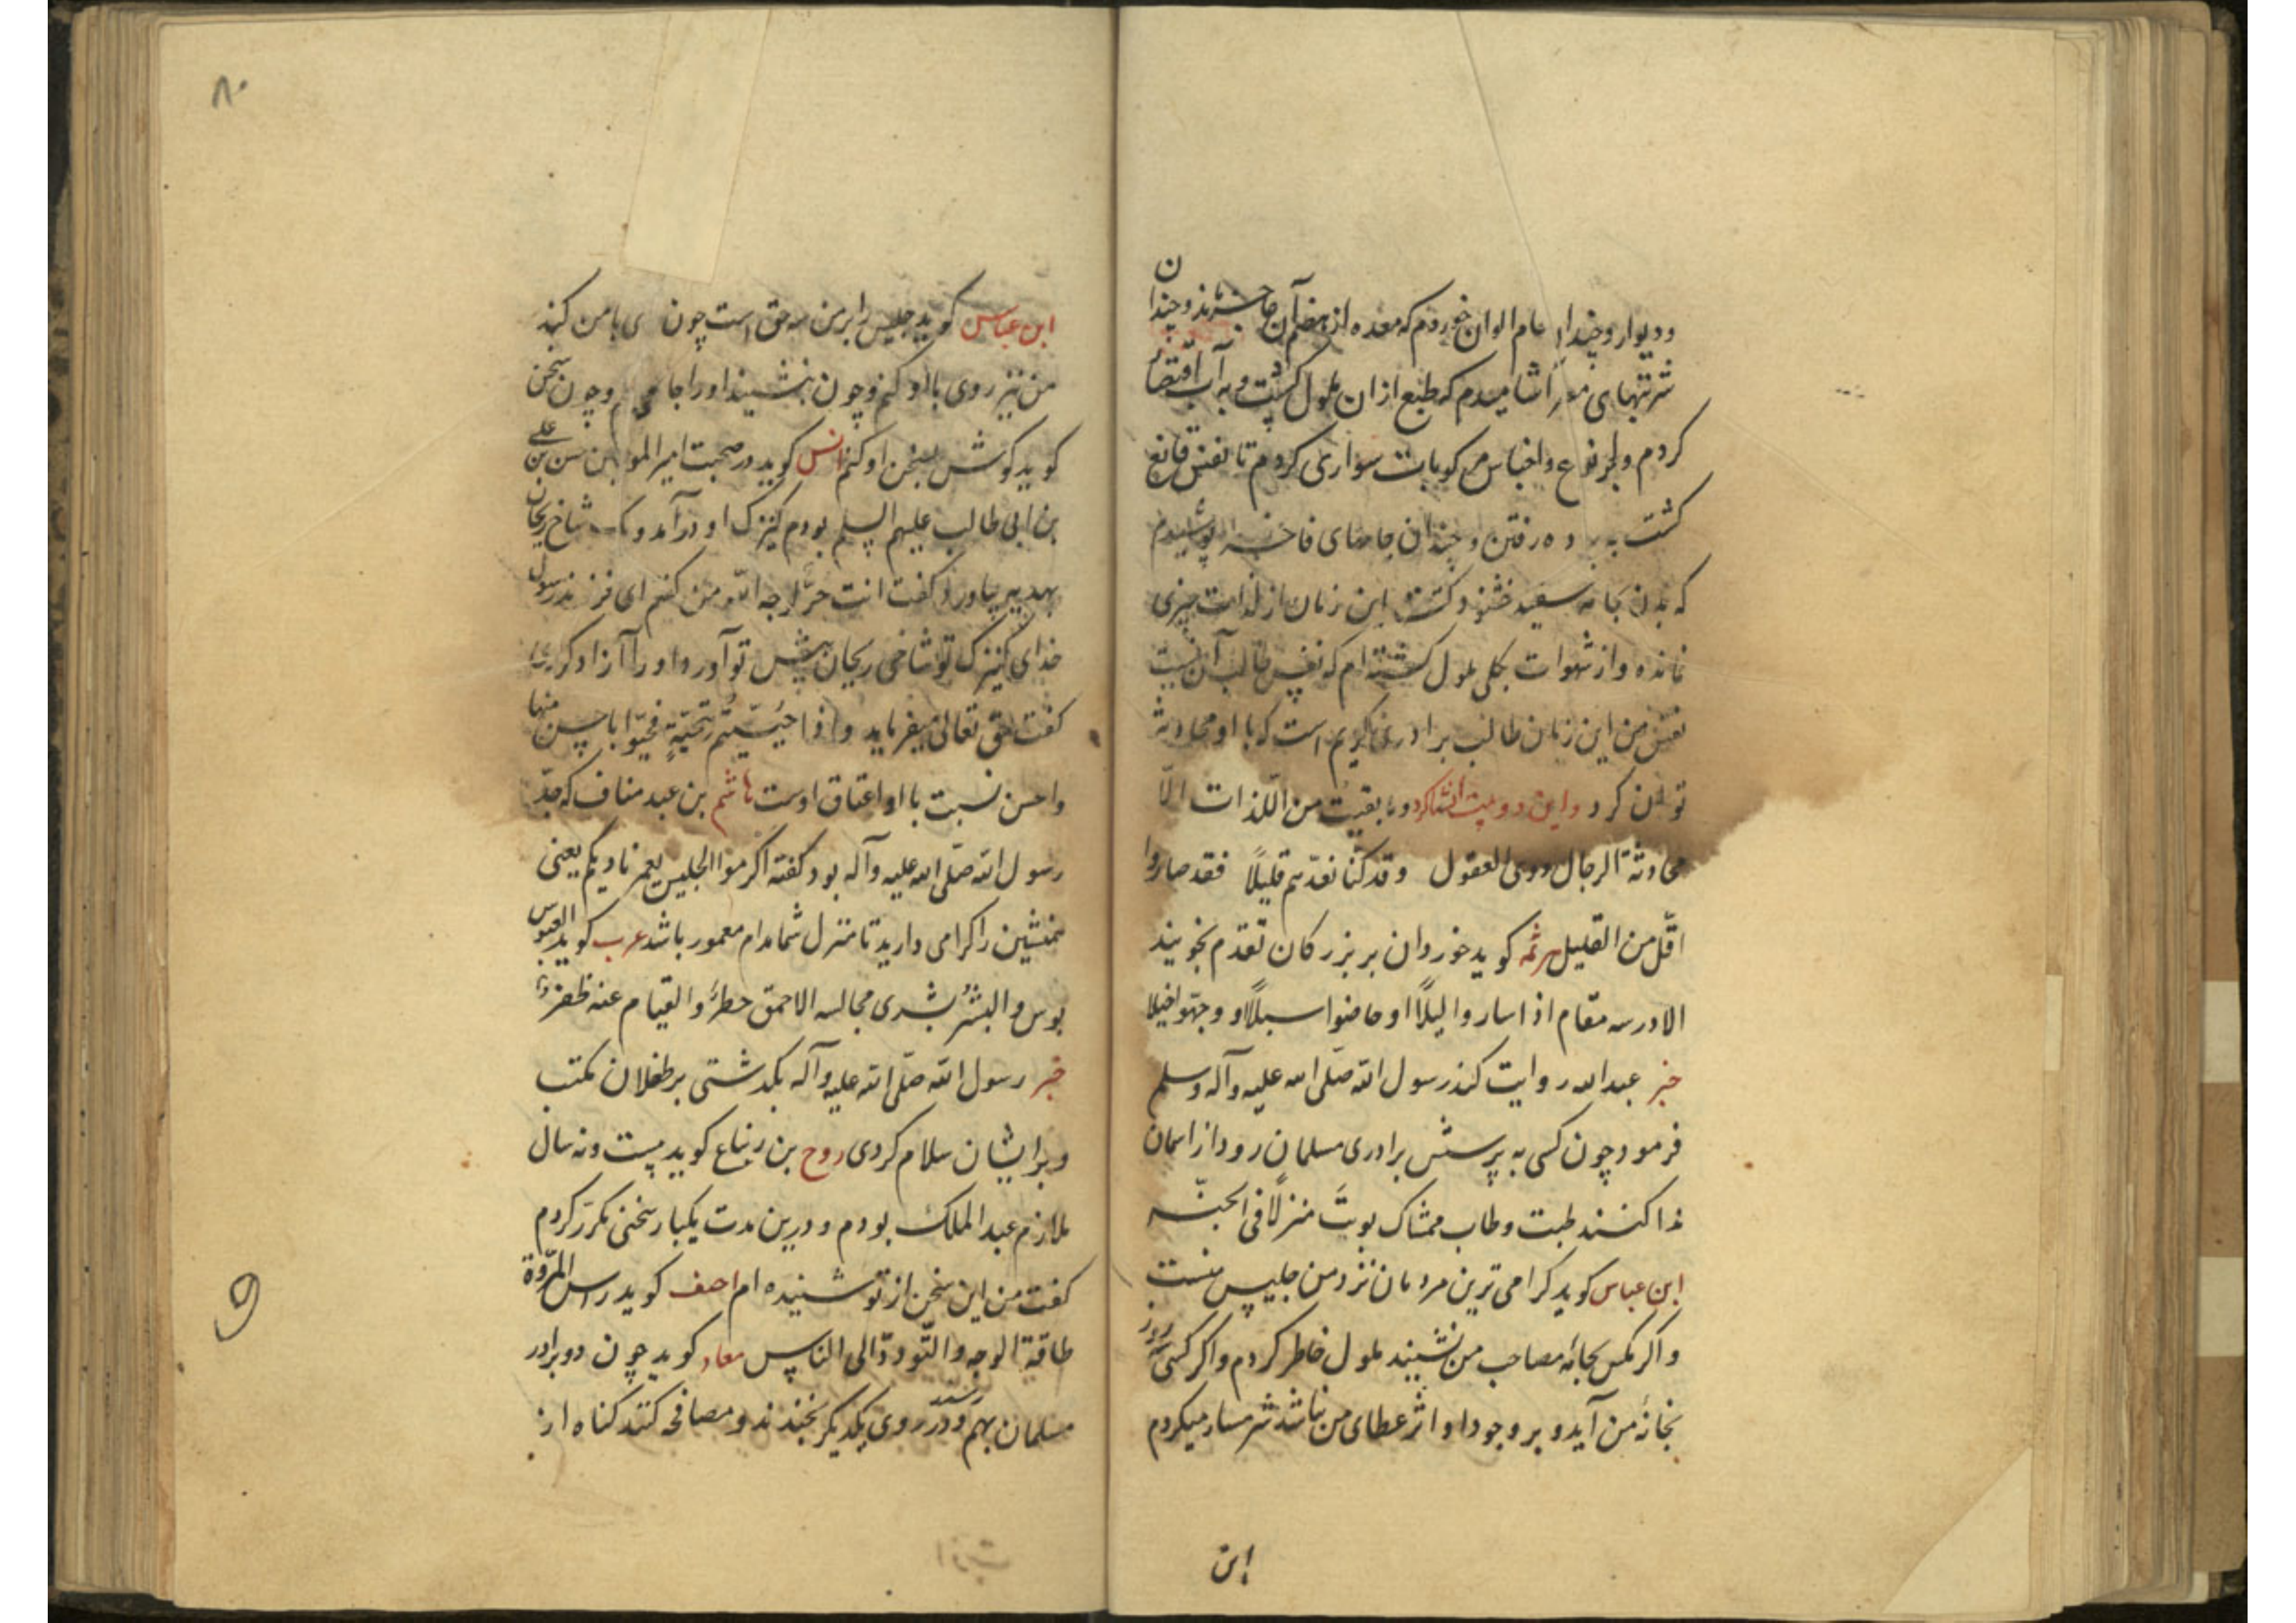 ودیوار و چندان عام الوان خوردم که معده از هضم آن عاجز شد و چندان
شربتهای آشامیدم که طبع از ان ملول گشت و به آب اقتضا
کردم ولهر نوع واجناس مرکوبات سواری کردم تا نفس قانع
کشت به رفتن و چندان جامهای فاخره پوشیدم
که بدن بجامه سفید خشنود کشت این زمان از لذات چیزی
نمانده و از شهوات بکلی ملول کشته ام که نفس طالب آن نیست
نفس من این زمان طالب برادری کریم است که با او محادثه
توان کرد و این دو بیت انشا کرد وما بقیت من اللذات الّا
محادثة الرجال ذوی العقول وقد کنّا نعدّهم قلیلاً فقد صاروا
اقلّ من القلیل هرثمه کوید خوردان بر بزرکان تقدم نجویند
الا در سه مقام اذا ساروا لیلاً او خاضوا سیلاً او وجهّوا خیلا
خبر عبد الله روایت کند رسول الله صلّی الله علیه وآله وسلم
فرمود چون کسی به پرسش برادری مسلمان رود از اسمان
ندا کنند طبت وطاب ممشاک بوئت منزلاً فی الجنّه
ابن عباس کوید کرامی ترین مردمان نزد من جلیس منست
و اکر مکس بجامه مصاحب من نشیند ملول خاطر کردم واکر کسی سه روز
بخانه من آید و بر وجود او اثر عطای من نباشد شرمسار میکردم
این
۸۰
ابن عباس کوید جلیس را بر من سه حق است چون ی با من کند
من نیز روی با او کنم و چون بنشیند او را جا دهم و چون سخن
کوید کوش بسخن او کنم انس کوید در صحبت امیر المو حسن بن علی
بن ابی طالب علیهم السلم بودم کنیزک او درآمد ویک شاخ ریحان
بهدیه بیاورد کفت انت حرّة لوجه الله من کفتم ای فرزند رسول
خدای کنیزک تو شاخی ریحان پیش تو آورد او را آزاد کردی
کفت حق تعالی میفرماید واذا حیّیتم بتحیّةٍ فحیّوا باحسن منها
واحسن نسبت با او اعتاق اوست هاشم بن عبد مناف که جدّ
رسول الله صلّی الله علیه وآله بود کفته اکرموا الجلیس یعمر نادیکم یعنی
همنشین را کرامی دارید تا منزل شما مدام معمور باشد عرب کوید العبوس
بوس والبشر بشری مجالسه الاحمق خطر والقیام عنه ظفر
خبر رسول الله صلّی الله علیه وآله بکدشتی بر طفلان مکتب
و بر ایشان سلام کردی روح بن زنباع کوید بیست ونه سال
ملازم عبد الملک بودم و درین مدت یکبار سخنی مکرّر کردم
کفت من این سخن از تو شنیده ام احنف کوید راس المروّة
طاقة الوجه والتّودّد الی الناس معاد کوید چون دو برادر
مسلمان بهم رسند و در روی یکدیکر بخندند و مصافحه کنند کناه از